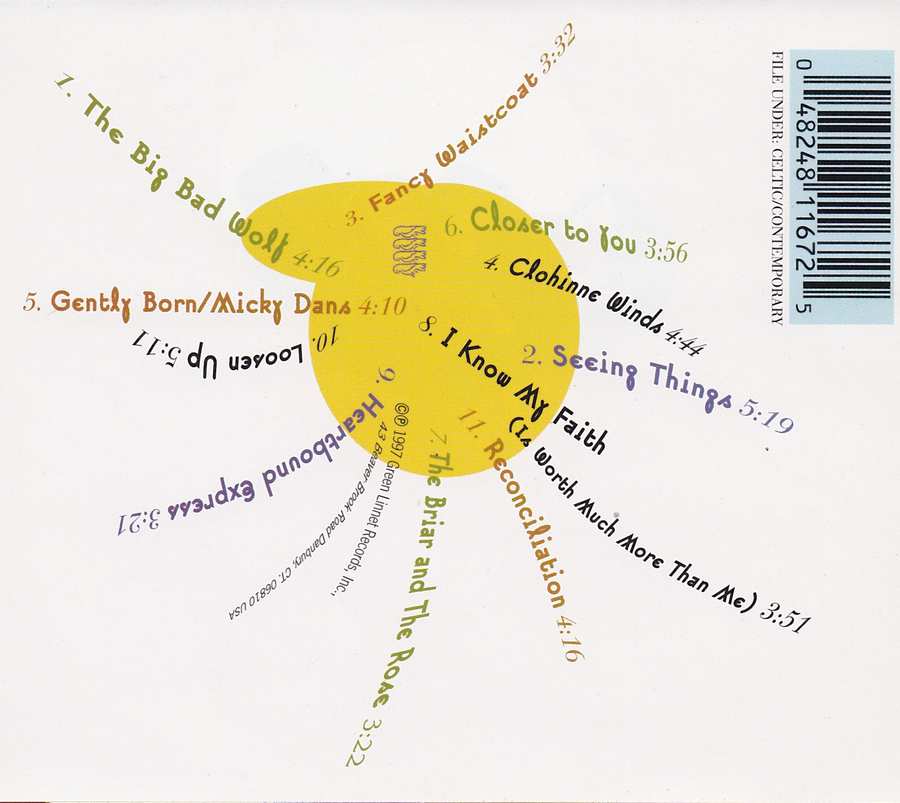 1. The Big Bad Wolf 4:16
3. Fancy Waistcoat 3:32
6. Closer to You 3:56
4. Clohinne Winds 4:44
5. Gently Born/Micky Dans 4:10
10. Loosen Up 5:11
8. I Know My Faith
(Is Worth Much More Than Me) 3:51
2. Seeing Things 5:19
9. Heartbound Express 3:21
11. Reconciliation 4:16
7. The Briar and The Rose 3:22
©℗ 1997 Green Linnet Records, Inc.,
43 Beaver Brook Road Danbury, CT. 06810 USA
FILE UNDER: CELTIC/CONTEMPORARY
0 48248 11672 5